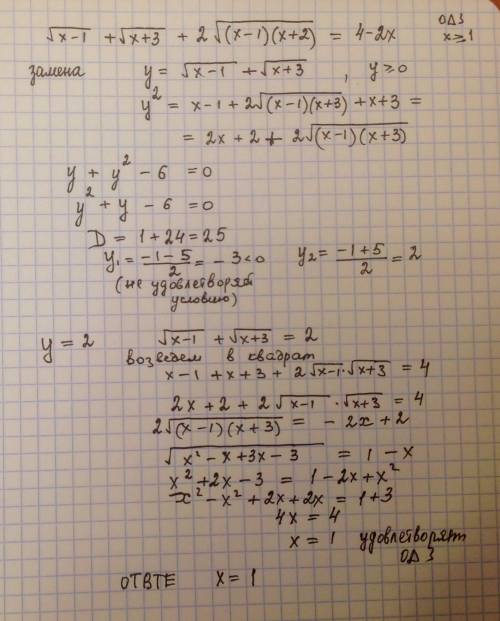 √(x-1) + √(x+3) + 2√((x-1)(x+2)) = 4-2x
ОДЗ
x≥1
замена y = √(x-1) + √(x+3) , y≥0
y² = x-1 + 2√((x-1)(x+3)) + x+3 =
= 2x + 2 + 2√((x-1)(x+3))
y + y² - 6 = 0
y² + y - 6 = 0
D = 1 + 24 = 25
y₁ = (-1-5)/2 = -3 < 0 y₂ = (-1+5)/2 = 2
(не удовлетворяет
условию)
y = 2 √(x-1) + √(x+3) = 2
возведем в квадрат
x-1 + x+3 + 2√(x-1)·√(x+3) = 4
2x + 2 + 2√(x-1) · √(x+3) = 4
2√((x-1)(x+3)) = -2x+2
√(x²-x+3x-3) = 1-x
x²+2x-3 = 1-2x+x²
x²-x²+2x+2x = 1+3
4x = 4
x = 1 удовлетворят
ОДЗ
ОТВТЕ x = 1